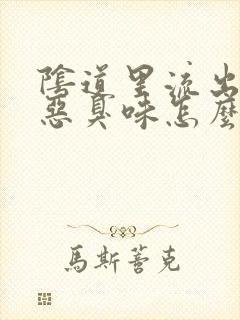 陰道里流出
惡臭味怎麼
馬斯著克